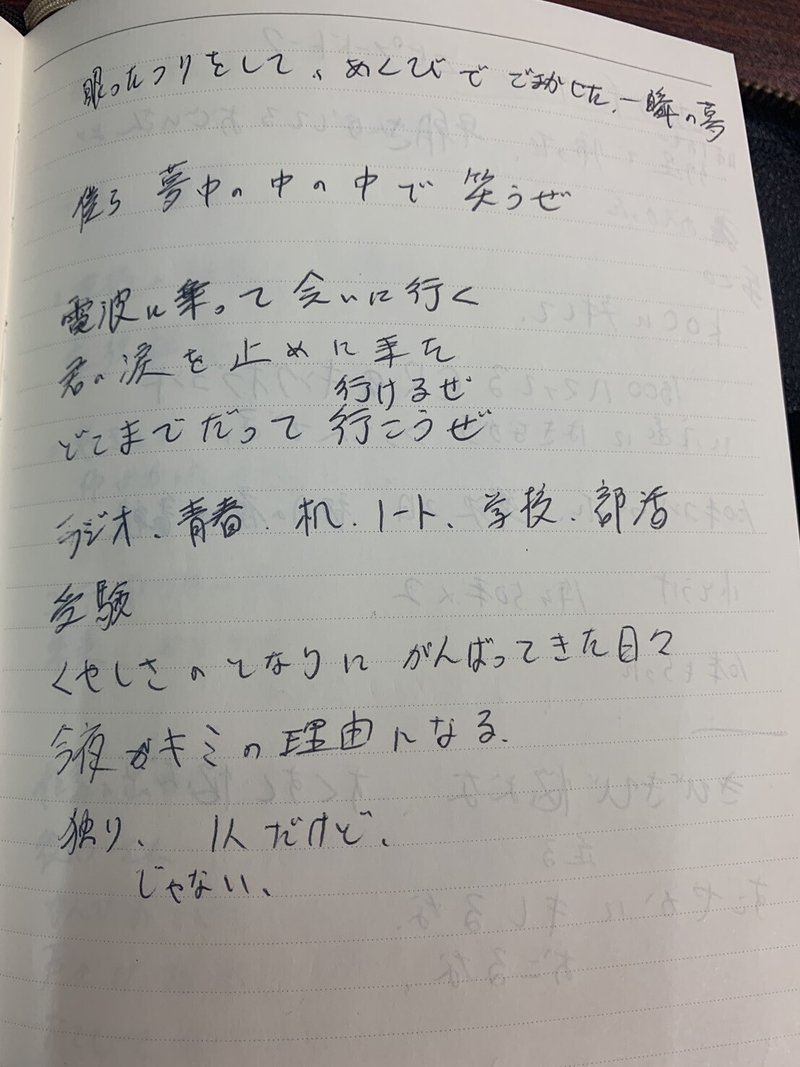 眠ったフリをして、あくびで ごまかした、一瞬の夢
僕ら 夢中の中の中で 笑うぜ
電波に乗って 会いに行く
君の涙を止めに来た
行けるぜ
どこまでだって 行こうぜ
ラジオ、青春、机、ノート、学校、部活
受験
くやしさのとなりに がんばってきた日々
今夜がキミの理由になる.
独り、 1人だけど、
じゃない、